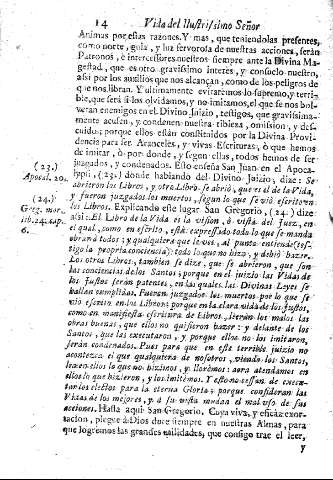 14 Vida del Ilustrissimo Señor
Animas por estas razones. Y mas, que teniendolas presentes,
como norte, guia, y luz fervorosa de nuestras acciones, serán
Patronos, è intercessores nuestros siempre ante la Divina Ma-
gestad, que es otro gravissimo interès, y consuelo nuestro,
assi por los auxilios que nos alcançan, como de los peligros de
que nos libran. Y ultimamente evitarèmos lo supremo, y terri-
ble, que serà si los olvidamos, y no imitamos, el que se nos bol-
veran enemigos en el Divino Juizio, testigos, que gravissima-
mente acusen, y condenen nuestra tibieza, omission, y des-
cuido; porque ellos estàn constituidos por la Divina Provi-
dencia para ser Aranceles, y vivas Escrituras, ò que hemos
de imitar, ò por donde, y segun ellos, todos hemos de ser
juzgados, y condenados. Esto enseña San Juan en el Apoca-
lypsi, (23.) donde hablando del Divino Juizio, dize: Se
abrieron los Libros, y otro Libro se abriò, que es el de la Vida,
y fueron juzgados los muertos, segun lo que se viò escrito en
los Libros. Explicando este lugar San Gregorio, (24.) dize
assi: El Libro de la Vida es la vision, ò vista del Juez, en
el qual, como en escrito, està expressado todo lo que se manda
obrar à todos; y qualquiera que le vee, al punto entiende (tes-
tigo la propria conciencia): todo lo que no hizo, y debiò hazer.
Los otros Libros, tambien se dize, que se abrieron, que son
las conciencias de los Santos; porque en el juizio las Vidas de
los Justos seràn patentes, en las quales las Divinas Leyes se
hallan cumplidas. Fueron juzgados los muertos por lo que se
viò escrito en los Libros; porque en la clara vida de los Justos,
como en manifiesta escritura de Libros, leeràn los malos las
obras buenas, que ellos no quisieron hazer: y delante de los
Santos, que las executaron, y porque ellos no los imitaron,
seràn condenados. Pues para que en este terrible juizio no
acontezca el que qualquiera de nosotros, viendo los Santos,
lea en ellos lo que no hizimos, y llorèmos: aora atendamos en
ellos lo que hizieron, y los imitèmos. Y esto no cessan de execu-
tar los electos para la eterna Gloria; porque consideran las
Vidas de los mejores, y à su vista mudan el mal uso de sus
acciones. Hasta aqui San Gregorio. Cuya viva, y eficàz exor-
tacion, plegue à Dios dure siempre en nuestras Almas, para
que logrèmos las grandes utilidades, que consigo trae el leer,
y
(23.)
Apocal. 20.
(24.)
Greg. mor.
lib. 24. cap.
6.